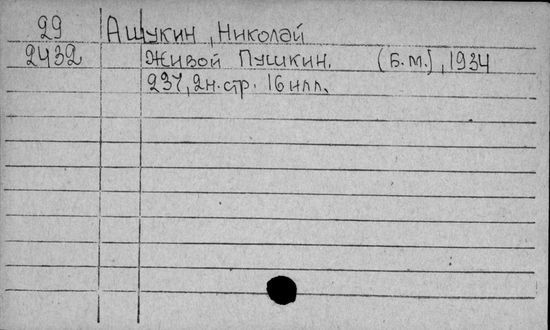 29 Ащукин, Николай
2432 Живой Пушкин. (Б.М.), 1934
237, 2н.стр. 16илл.